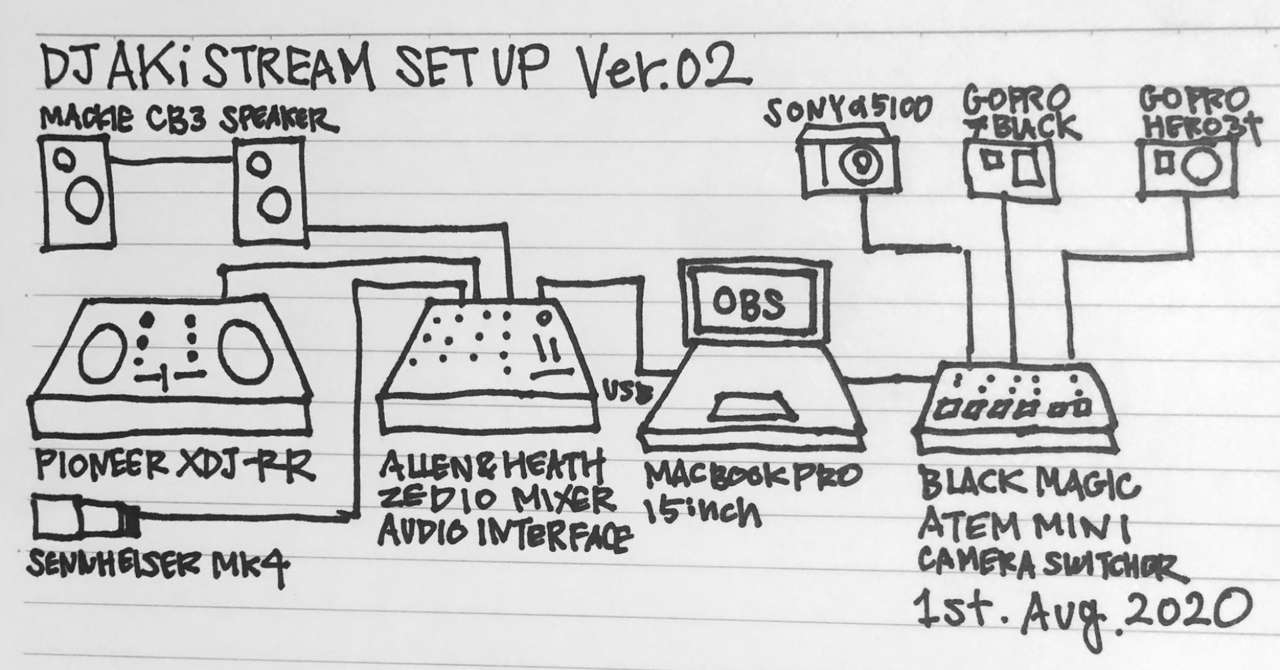 DJ AKi STREAM SET UP Ver.02
MACKIE CB3 SPEAKER
SONY α5100
GOPRO
7 BLACK
GOPRO
HERO3+
OBS
USB
PIONEER XDJ-RR
ALLEN & HEATH
ZED10 MIXER
AUDIO INTERFACE
MACBOOK PRO
15inch
BLACK MAGIC
ATEM MINI
CAMERA SWITCHER
SENNHEISER MK4
1st. Aug. 2020